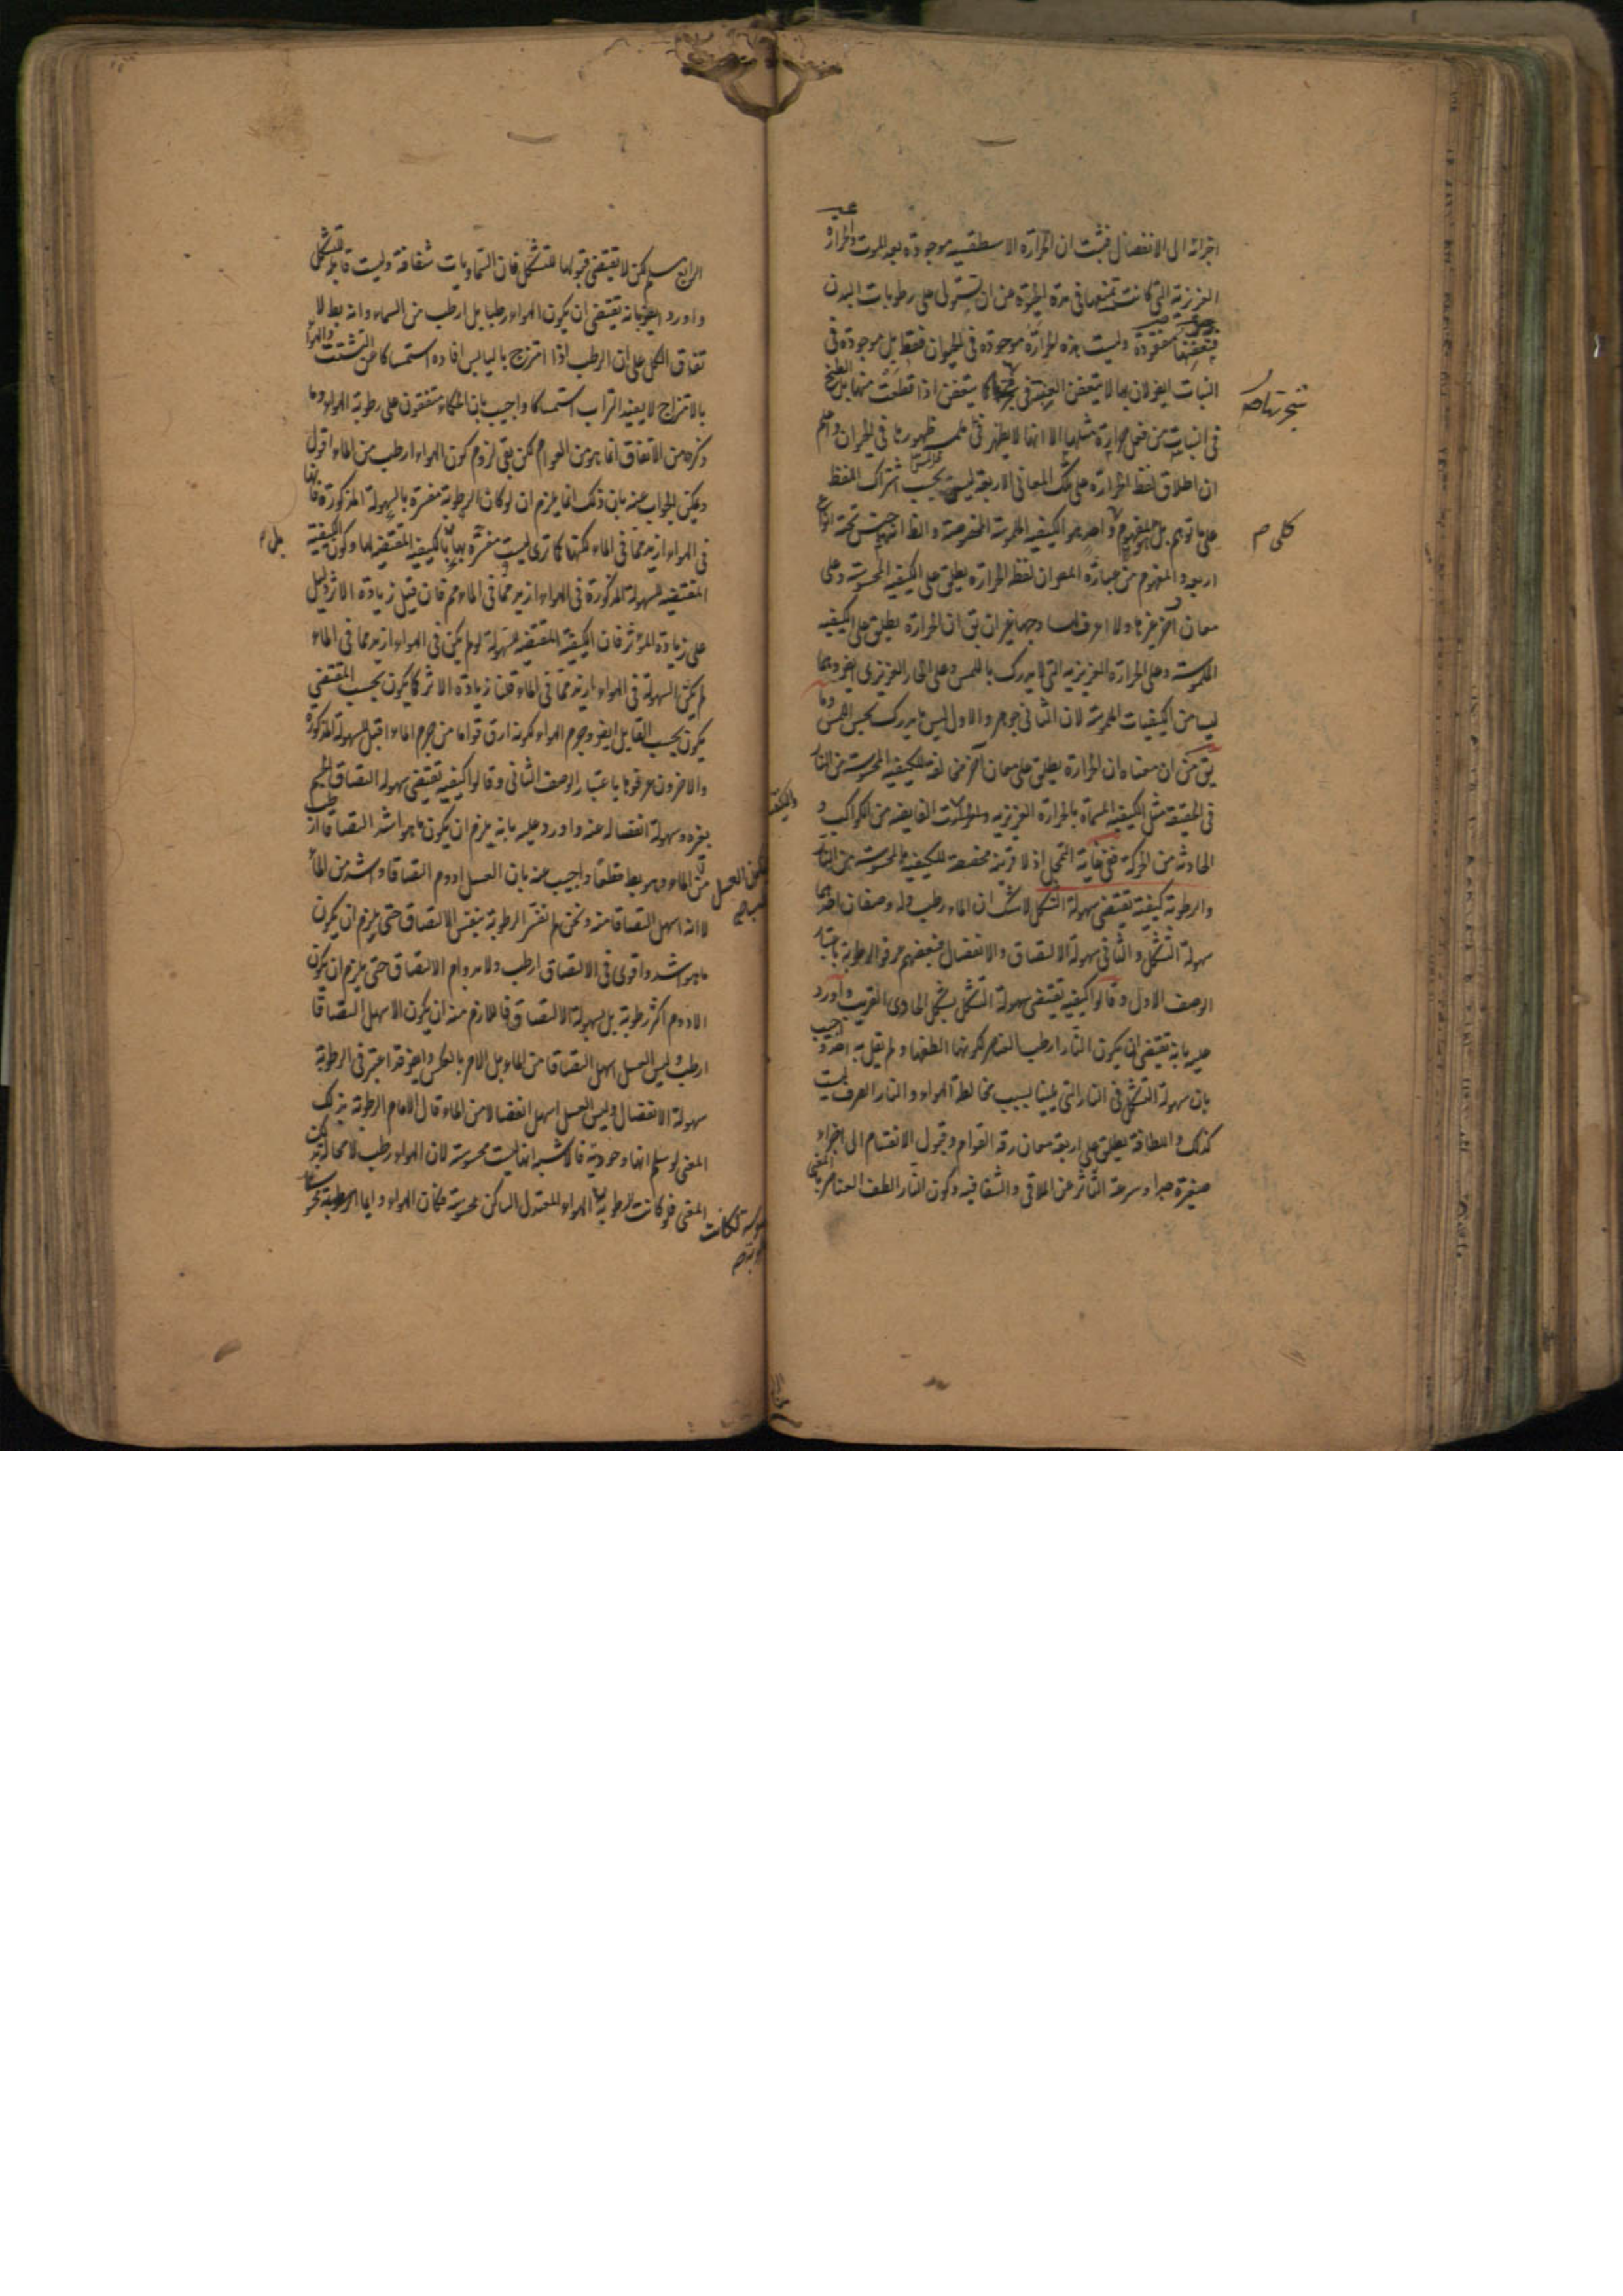 اجزائه الى الانفصال فثبت ان الحرارة الاسطقسيه موجودة بعد الموت والحرارة
الغريزية التى كانت تمنعها فى مدة الحيوة عن ان تستولى على رطوبات البدن
فتعفنها مفقودة وليست هذه الحرارة موجودة فى الحيوان فقط بل موجودة فى
النبات ايضا لان بها لا يتعفن العفن فى شجرتها كما يتعفن اذا قطعت منها
شجرتها صح
فى النبات من فعل حرارة مثلها الا انها لا يظهر ظهورها فى الحيوان واعلم
ان اطلاق لفظ الحرارة على تلك المعانى الاربعة ليس بحسب اشتراك اللفظ
على ما توهم بل المفهوم واحد هو الكيفية الملموسة المخصوصة والظ انه جنس تحته انواع
كلى م
اربعة والمفهوم من عبارة المص ان لفظ الحرارة يطلق على الكيفية المحسوسة وعلى
معان اخر غيرها ولا اعرف لها وجها غير ان يق ان الحرارة يطلق على الكيفية
الملموسة وعلى الحرارة الغريزية التى لا يدرك باللمس وعلى الحار الغريزى ايض وهما
ليسا من الكيفيات الملموسة لان الثانى جوهر والاول ليس مما يدرك بحس اللمس وما
يق من ان معناه ان الحرارة يطلق على معان اخر مخالفة للكيفية المحسوسة من النار
فى الحقيقة مثل الكيفية المسماة بالحرارة الغريزية والحرارت الفايضة من الكواكب و
الحادثة من الحركة ففى غاية التمحل اذ لا قرينة مخصصة للكيفية المحسوسة من النار
والرطوبة كيفية تقتضى سهولة التشكل لا شك ان الماء رطب وله وصفان احدهما
سهولة التشكل والثانى سهولة الالتصاق والانفصال فبعضهم عرفوا الرطوبة باعتبار
الوصف الاول وقالوا كيفية تقتضى سهولة التشكل بشكل الحاوى القريب واورد
عليه بانه يقتضى ان يكون النار ارطب العناصر لكونها الطفها ولم يقل به احد واجيب
بان سهولة التشكل فى النار التى يلينا بسبب مخالطة الهواء والنار الصرف ليست
كذلك واللطافة يطلق على اربعة معان رقة القوام وقبول الانقسام الى اجزاء
صغيرة جدا وسرعة التاثر عن الملاقى والشفافية وكون النار الطف العناصر بالمعنى
الرابع مسلم لكن لا يقتضى قبولها للتشكل فان السماويات شفافة وليست قابلة للتشكل
واورد ايض بانه يقتضى ان يكون الهواء رطبا بل ارطب من الماء وانه بط لا
تفاق الكل على ان الرطب اذا امتزج باليابس افاده استمساكا عن التشتت والهواء
بالامتزاج لا يفيد التراب استمساكا واجيب بان الحكماء متفقون على رطوبة الهواء وما
ذكره من الاتفاق انما هو من العوام لكن بقى لزوم كون الهواء ارطب من الماء اقول
ويمكن الجواب عنه بان ذلك انما يلزم ان لو كان الرطوبة مفسرة بالسهولة المذكورة فانها
فى الهواء ازيد مما فى الماء لكنها كما ترى ليست مفسرة بها بالكيفية المقتضية لها وكون الكيفية
بل م
المقتضية للسهولة المذكورة فى الهواء ازيد مما فى الماء مم فان قيل زيادة الاثر دليل
على زيادة المؤثر فان الكيفية المقتضية للسهولة لو لم يكن فى الهواء ازيد مما فى الماء
لم يكن السهولة فى الهواء ازيد مما فى الماء قلنا زيادة الاثر كما يكون بحسب المقتضى
يكون بحسب القابل ايض وجرم الهواء لكونه ارق قواما من جرم الماء اقبل للسهولة المذكورة
والاخرون عرفوها باعتبار الوصف الثانى وقالوا كيفية تقتضى سهولة التصاق الجسم
بغيره وسهولة انفصاله عنه واورد عليه بانه يلزم ان يكون ما هو اشد التصاقا ارطب
من الماء وهو بط قطعا واجيب عنه بان العسل ادوم التصاقا واشد من الماء
لا انه اسهل التصاقا منه ونحن لم نفسر الرطوبة بنفس الالتصاق حتى يلزم ان يكون
ما هو اشد واقوى فى الالتصاق ارطب ولا بدوام الالتصاق حتى يلزم ان يكون
الادوم اكثر رطوبة بل بسهولة الالتصاق فاللازم منه ان يكون الاسهل التصاقا
ارطب وليس العسل اسهل التصاقا من الماء بل الامر بالعكس وايض قد اعتبر فى الرطوبة
سهولة الانفصال وليس العسل اسهل انفصالا من الماء قال الامام الرطوبة بذلك
المعنى لو سلم انها وجودية فالاشبه انها ليست محسوسة لان الهواء رطب لا محالة بذلك
المعنى فلو كانت الرطوبة الهواء المعتدل الساكن محسوسة فكان الهواء دايما